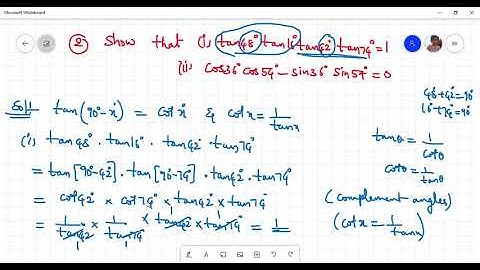 Microsoft Whiteboard
② Show that (i) tan48° tan16° tan42° tan74° = 1
(ii) cos36° cos54° − sin36° sin54° = 0
48+42=90°
16+74=90°
Sol: tan(90°−x) = cotx & cotx = 1/tanx
(i) tan48° . tan16° . tan42° . tan74°
= tan[90°−42°] . tan[90°−74°] . tan42° . tan74°
= cot42° × cot74° × tan42° × tan74°
= 1/tan42° × 1/tan74° × tan42° × tan74° = 1
tanθ = 1/cotθ
cotθ = 1/tanθ
(complement angles)
(cotx = 1/tanx)